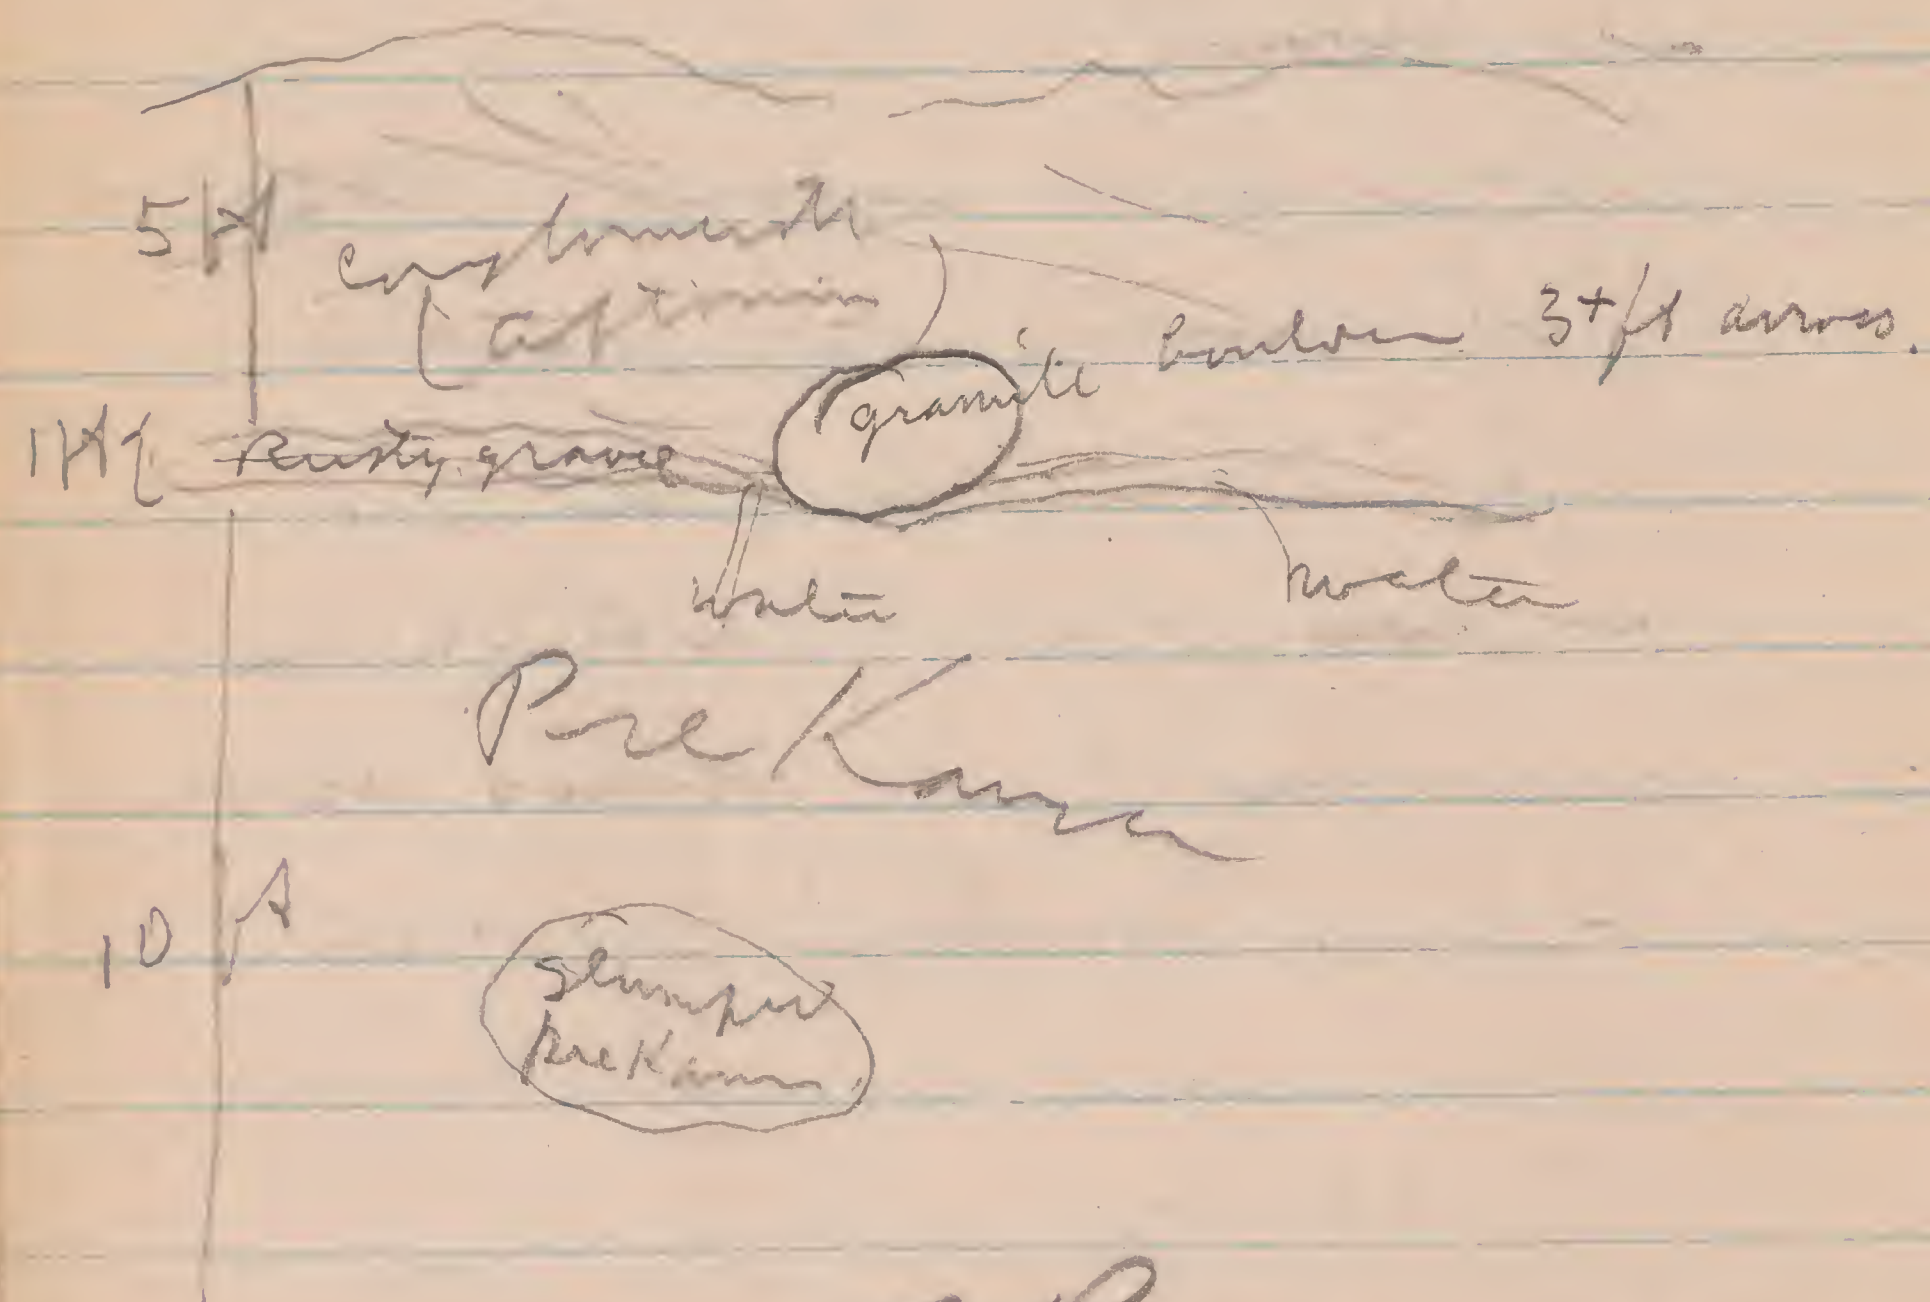 5 ft
conglomerate
(Aftonian)
granite boulder 3+ ft across.
1 ft { Rusty gravel
water water
Pre Kansan
10 ft
slumped
pre Kansan